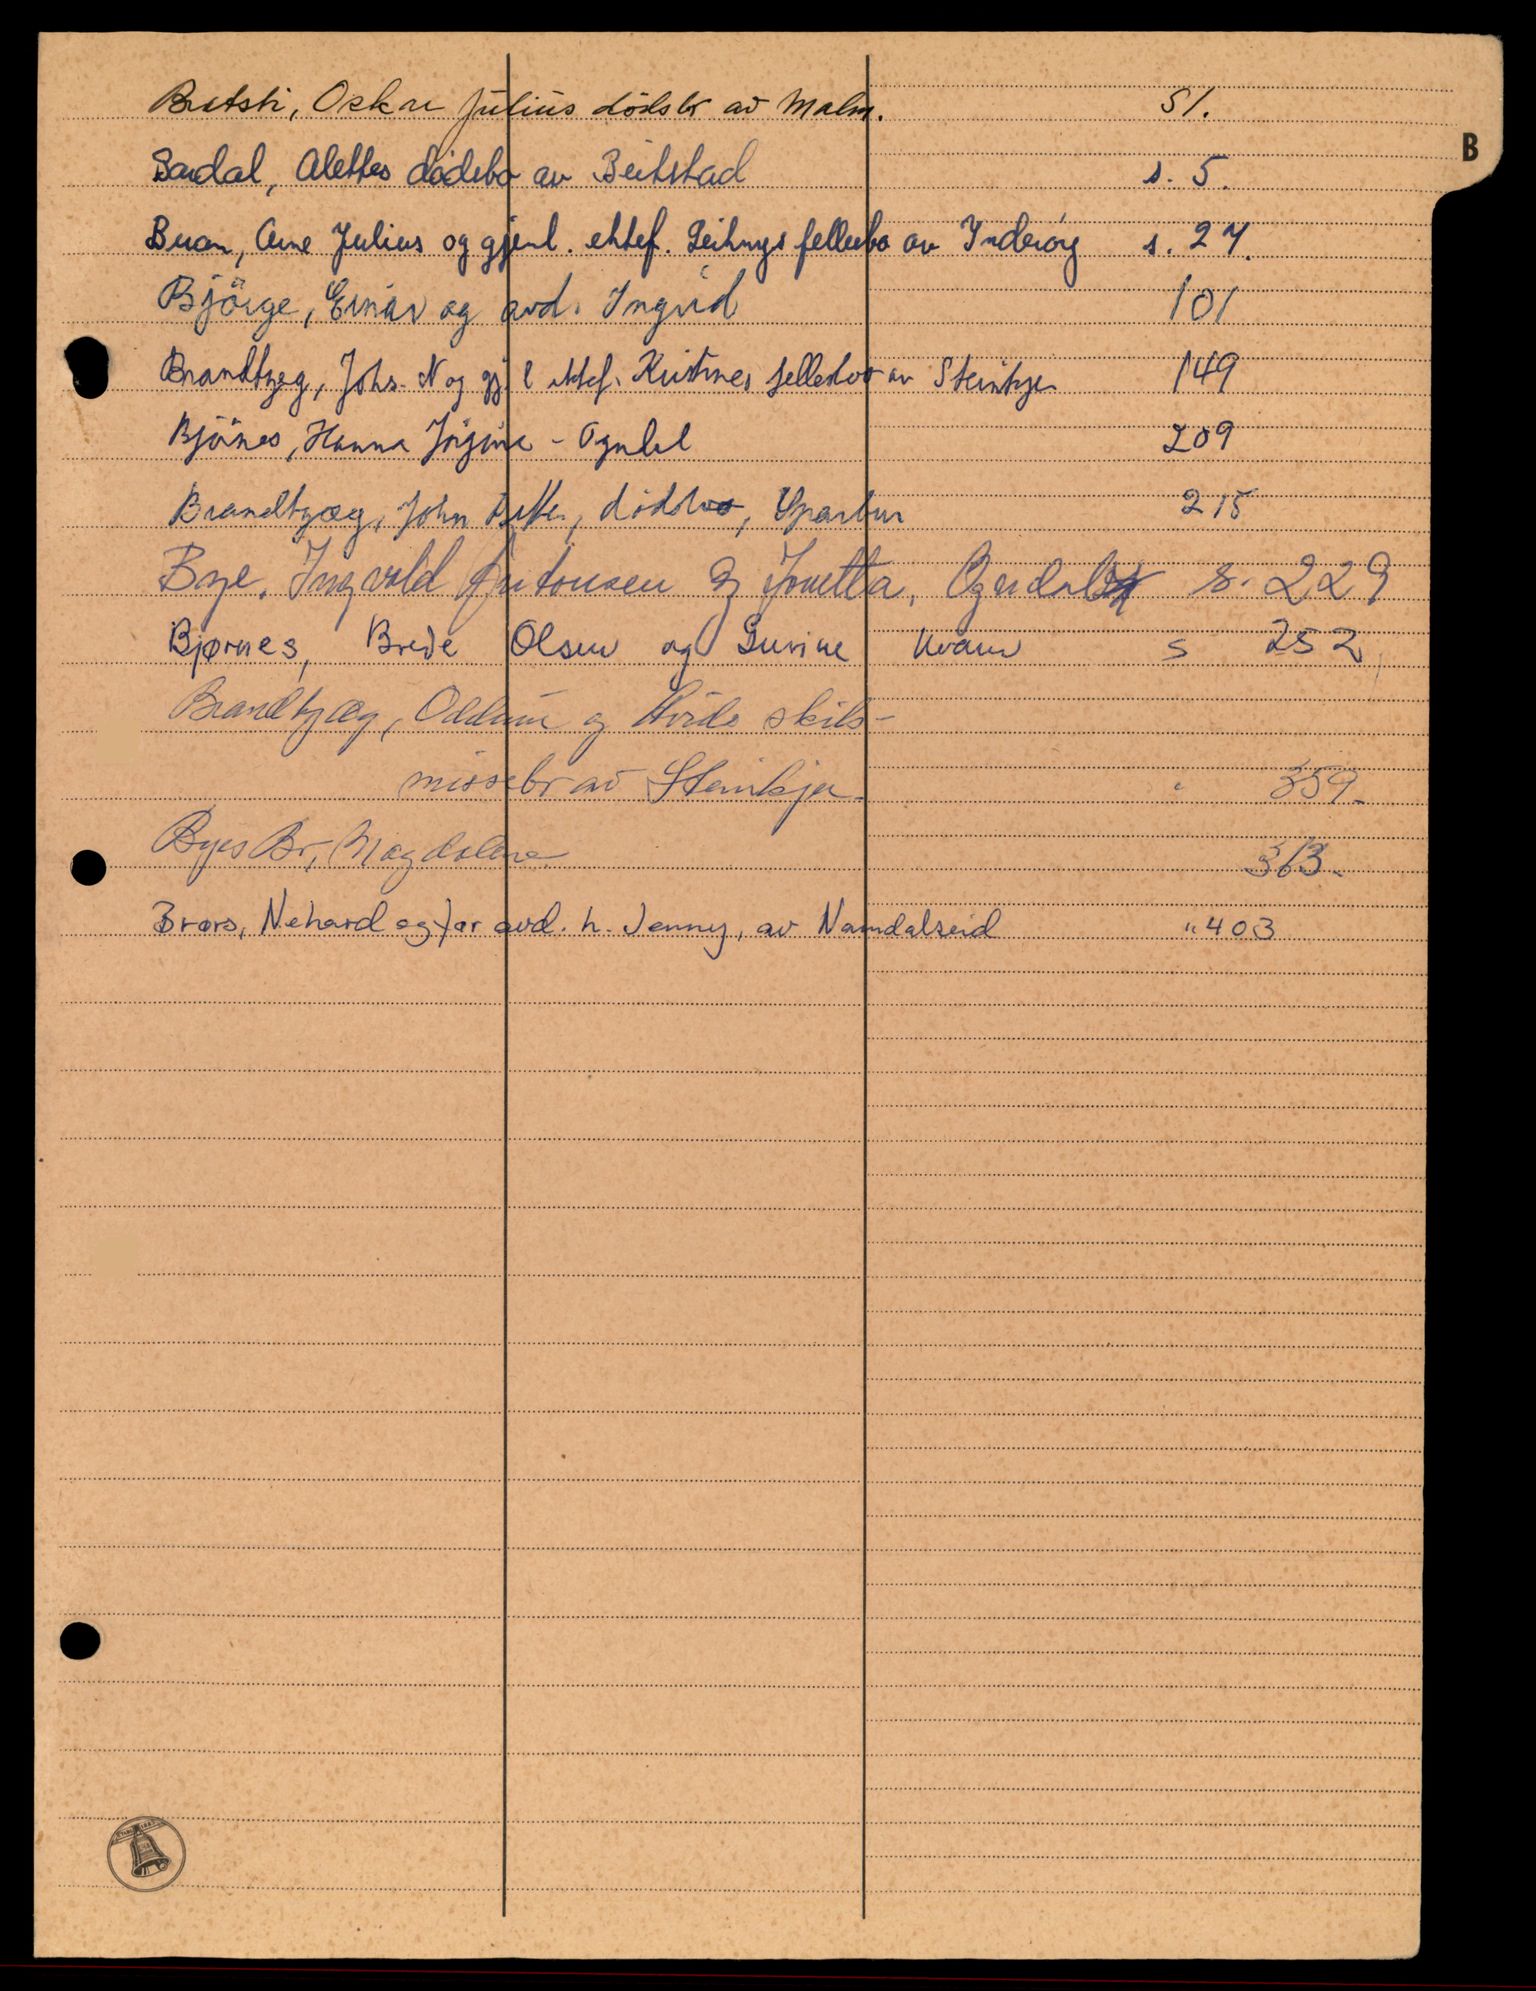 B
Bratsti, Oskar Julius dødsbo av Malm. S1.
Bardal, Alettes dødsbo av Beitstad s. 5.
Buan, Arne Julius og gjenl. ektef. fellesbo av Inderøy s. 27.
Björge, Einar og avd. Ingrid 101
Brandtzeg, Johs. N og gj. l ektef. Kristines fellesbo av Steinkjer 149
Björnes, Hanna Jörgine - Ogndal 209
Brandtzæg, John Petter, dødsbo, Sparbu 215
Bye, Ingvald Antonsen og Jonetta, Ogndal s. 229
Bjørnes, Brede Olsen og Gurine Kvam s 252
Brandtzæg, Oddrun og skils-
missebo av Steinkjer " 359.
Byes Bo, Magdalene 363.
Brørs, Nehard og for avd. h. Jenny, av Namdalseid " 403